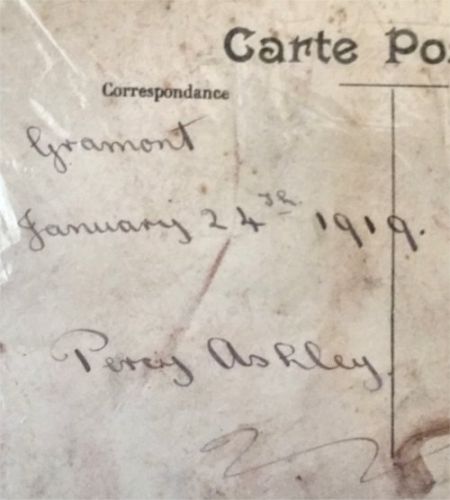 Carte Po
Correspondance
Gramont
January 24th 1919.
Percy Ashley.